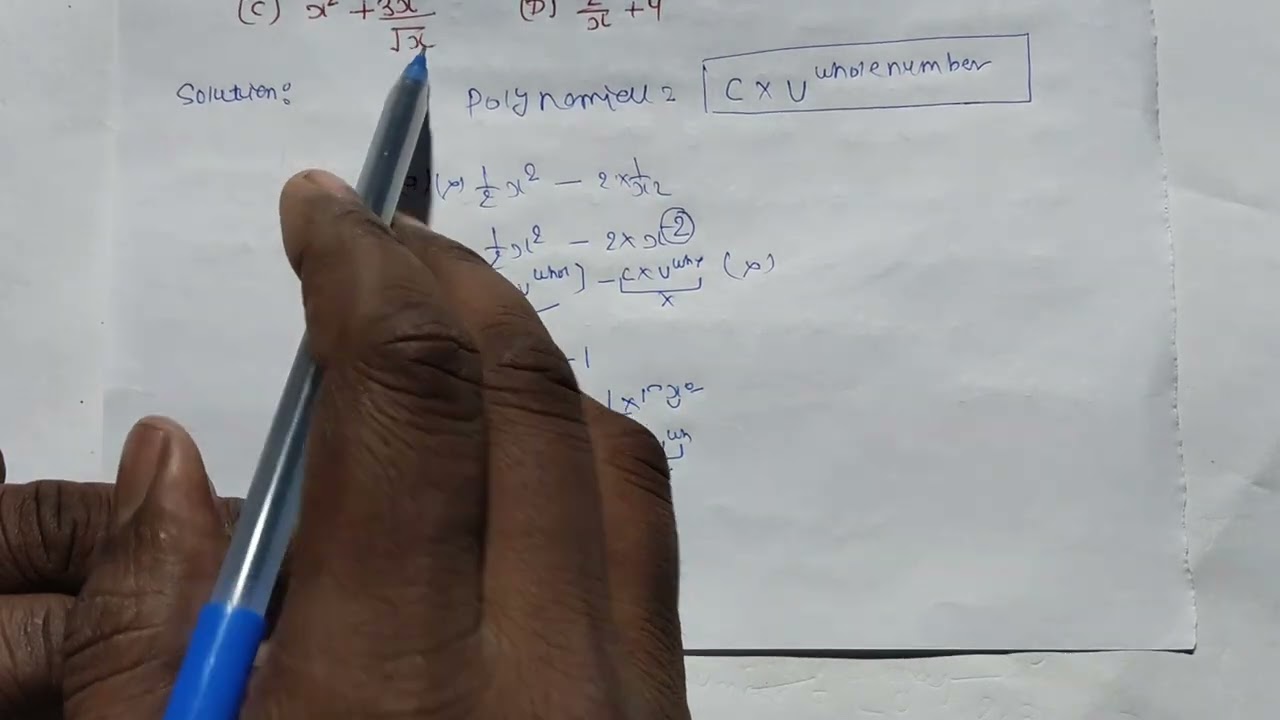 (C) x² + 3x/√x (D) 2/x + 4
Solution:
Polynomial = C × V^whole number
(x) 1/2 x² − 2 × 1/x²
1/2 x² − 2 × x^-2
V^whol] − C × V^who (x)
x
− 1
1 × 1^n x^0
wh